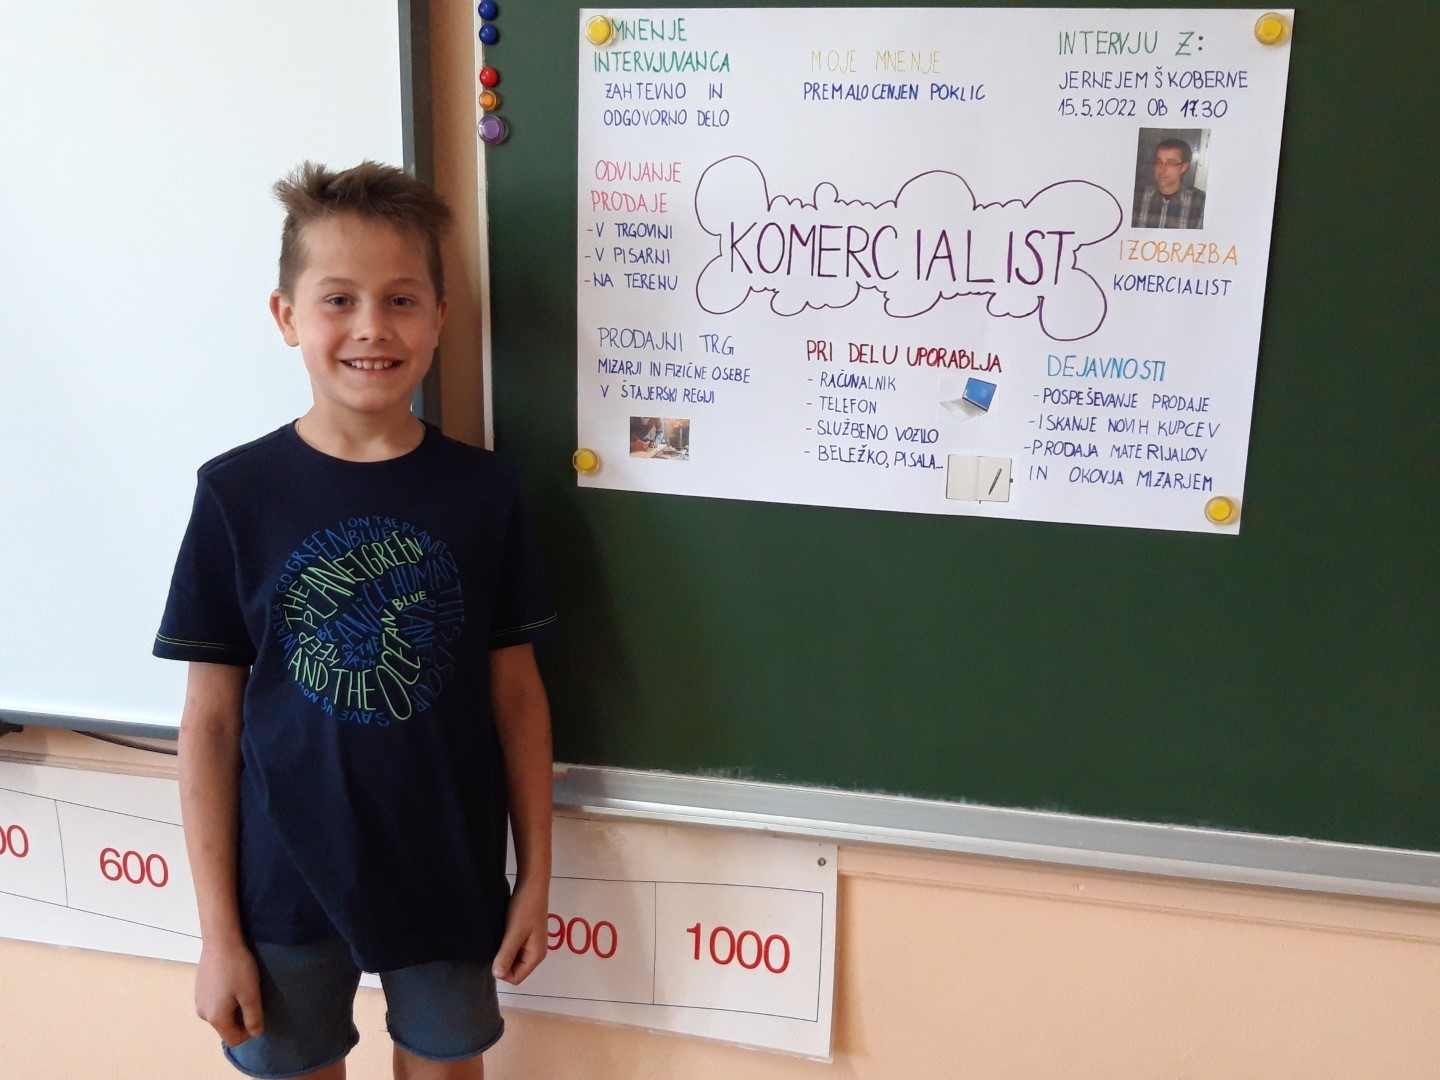 MNENJE
INTERVJUVANCA
ZAHTEVNO IN
ODGOVORNO DELO
MOJE MNENJE
PREMALOCENJEN POKLIC
INTERVJU Z:
JERNEJEM ŠKOBERNE
15.5.2022 OB 17.30
ODVIJANJE
PRODAJE
-V TRGOVINI
-V PISARNI
-NA TERENU
KOMERCIALIST
IZOBRAZBA
KOMERCIALIST
PRODAJNI TRG
MIZARJI IN FIZIČNE OSEBE
V ŠTAJERSKI REGIJI
PRI DELU UPORABLJA
- RAČUNALNIK
- TELEFON
- SLUŽBENO VOZILO
- BELEŽKO, PISALA...
DEJAVNOSTI
-POSPEŠEVANJE PRODAJE
-ISKANJE NOVIH KUPCEV
-PRODAJA MATERIJALOV
IN OKOVJA MIZARJEM
GO GREEN ON THE PLANET
BLUE
THE PLANET GREEN
KEEP
BE A NICE HUMAN
THE EARTH
AND THE OCEAN BLUE
THIS IS OUR
PLANET
SAVE US NOW
00
600
900
1000